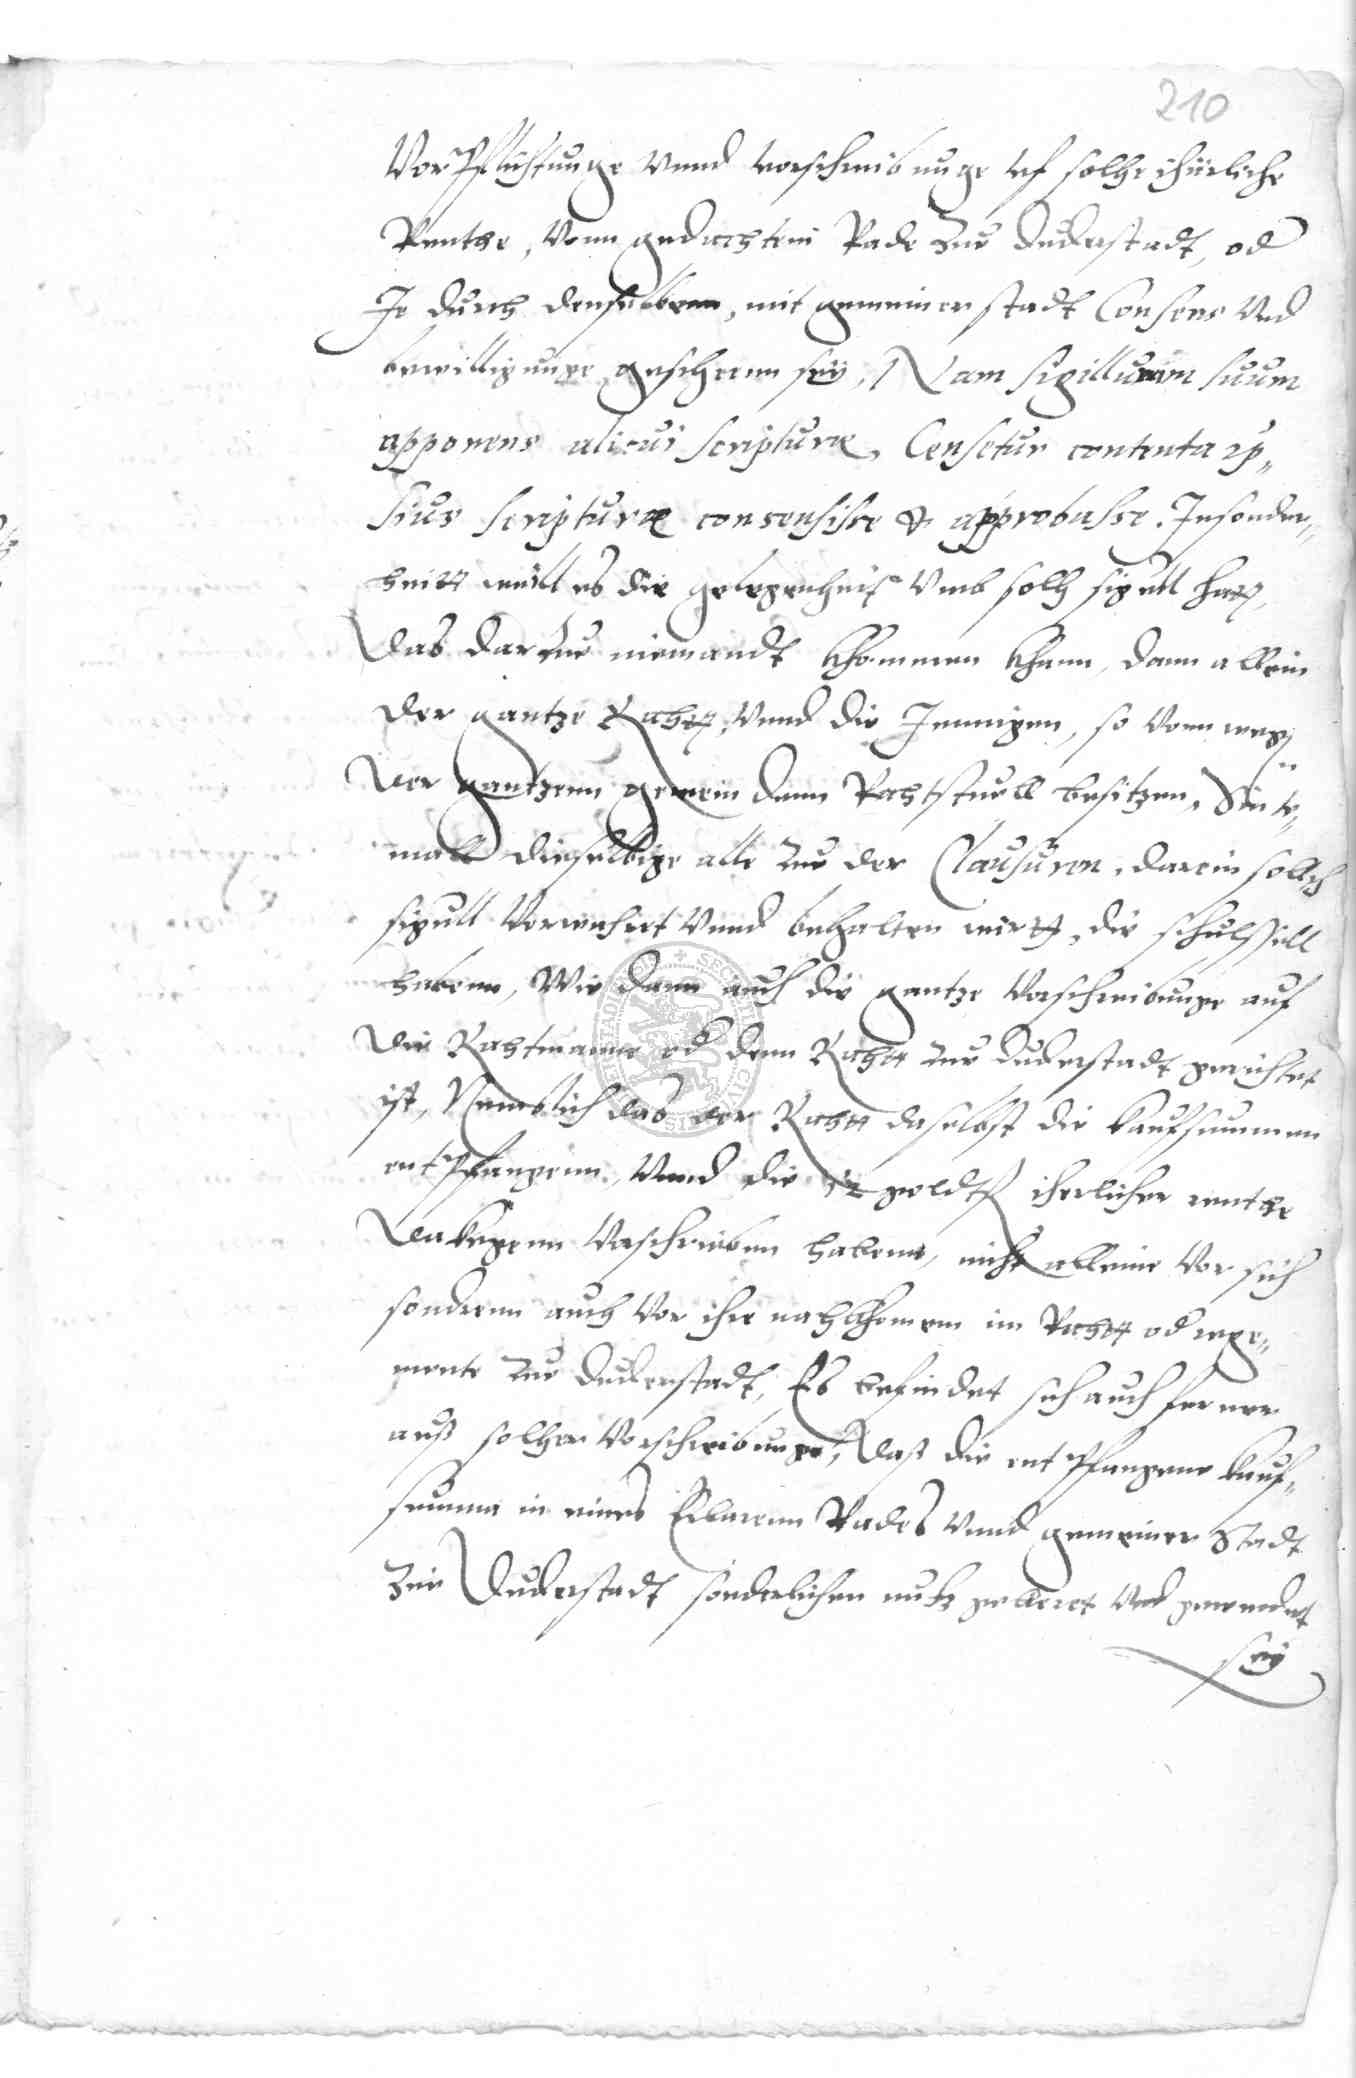 210
VorPflichtunge vnnd vorschreibunge vf solche iherliche
Renthe, vonn gedachtem Rade zue Duderstadt, od
Je durch denselbenn, mit gemeiner stadt Consens vnd
bewilligunge gescheenn seÿ, Nam sigillum suum
apponens alicui scripturæ, Censetur contenta ip„
sius scripturæ consensisse & approbasse. Insonder„
heitt weill es die gelegenheit vmb solch sigell hatt,
Das dar zue niemandt khommen khann, dann allein
der gantze Rahtt, vnnd die Jennigen, so vonn wegen
der gantzenn gemein denn Rahtstuell besitzen, Sinte„
mall dieselbige alle zue der Clausuren, darein sollich
sigell verwahrt vnnd behalten wirtt, die schlussell
habenn, Wie dann auch die gantze Vorschreibunge auf
die Rahtmanne od denn Rahtt zue Duderstadt gerichtet
ist, Nemblich das der Rahtt daselbst die kaufsummen
entPfangenn, vnnd die 12 goldtfl iherlicher renthe
dakegenn vorschrieben habenn, nicht alleine vor sich
sondernn auch vor ihre nachkhomenn im Rahtt od rege„
mente zue Duderstadt, Es befindet sich auch ferner
auß solcher vorschreibunge, daß die entPfangene kauf„
summa in eines Erbarenn Rades vnnd gemeiner Stadt
zue Duderstadt sonderlichen nutz gekeret vnd gewendet
seÿ
SECRETUM CIVI